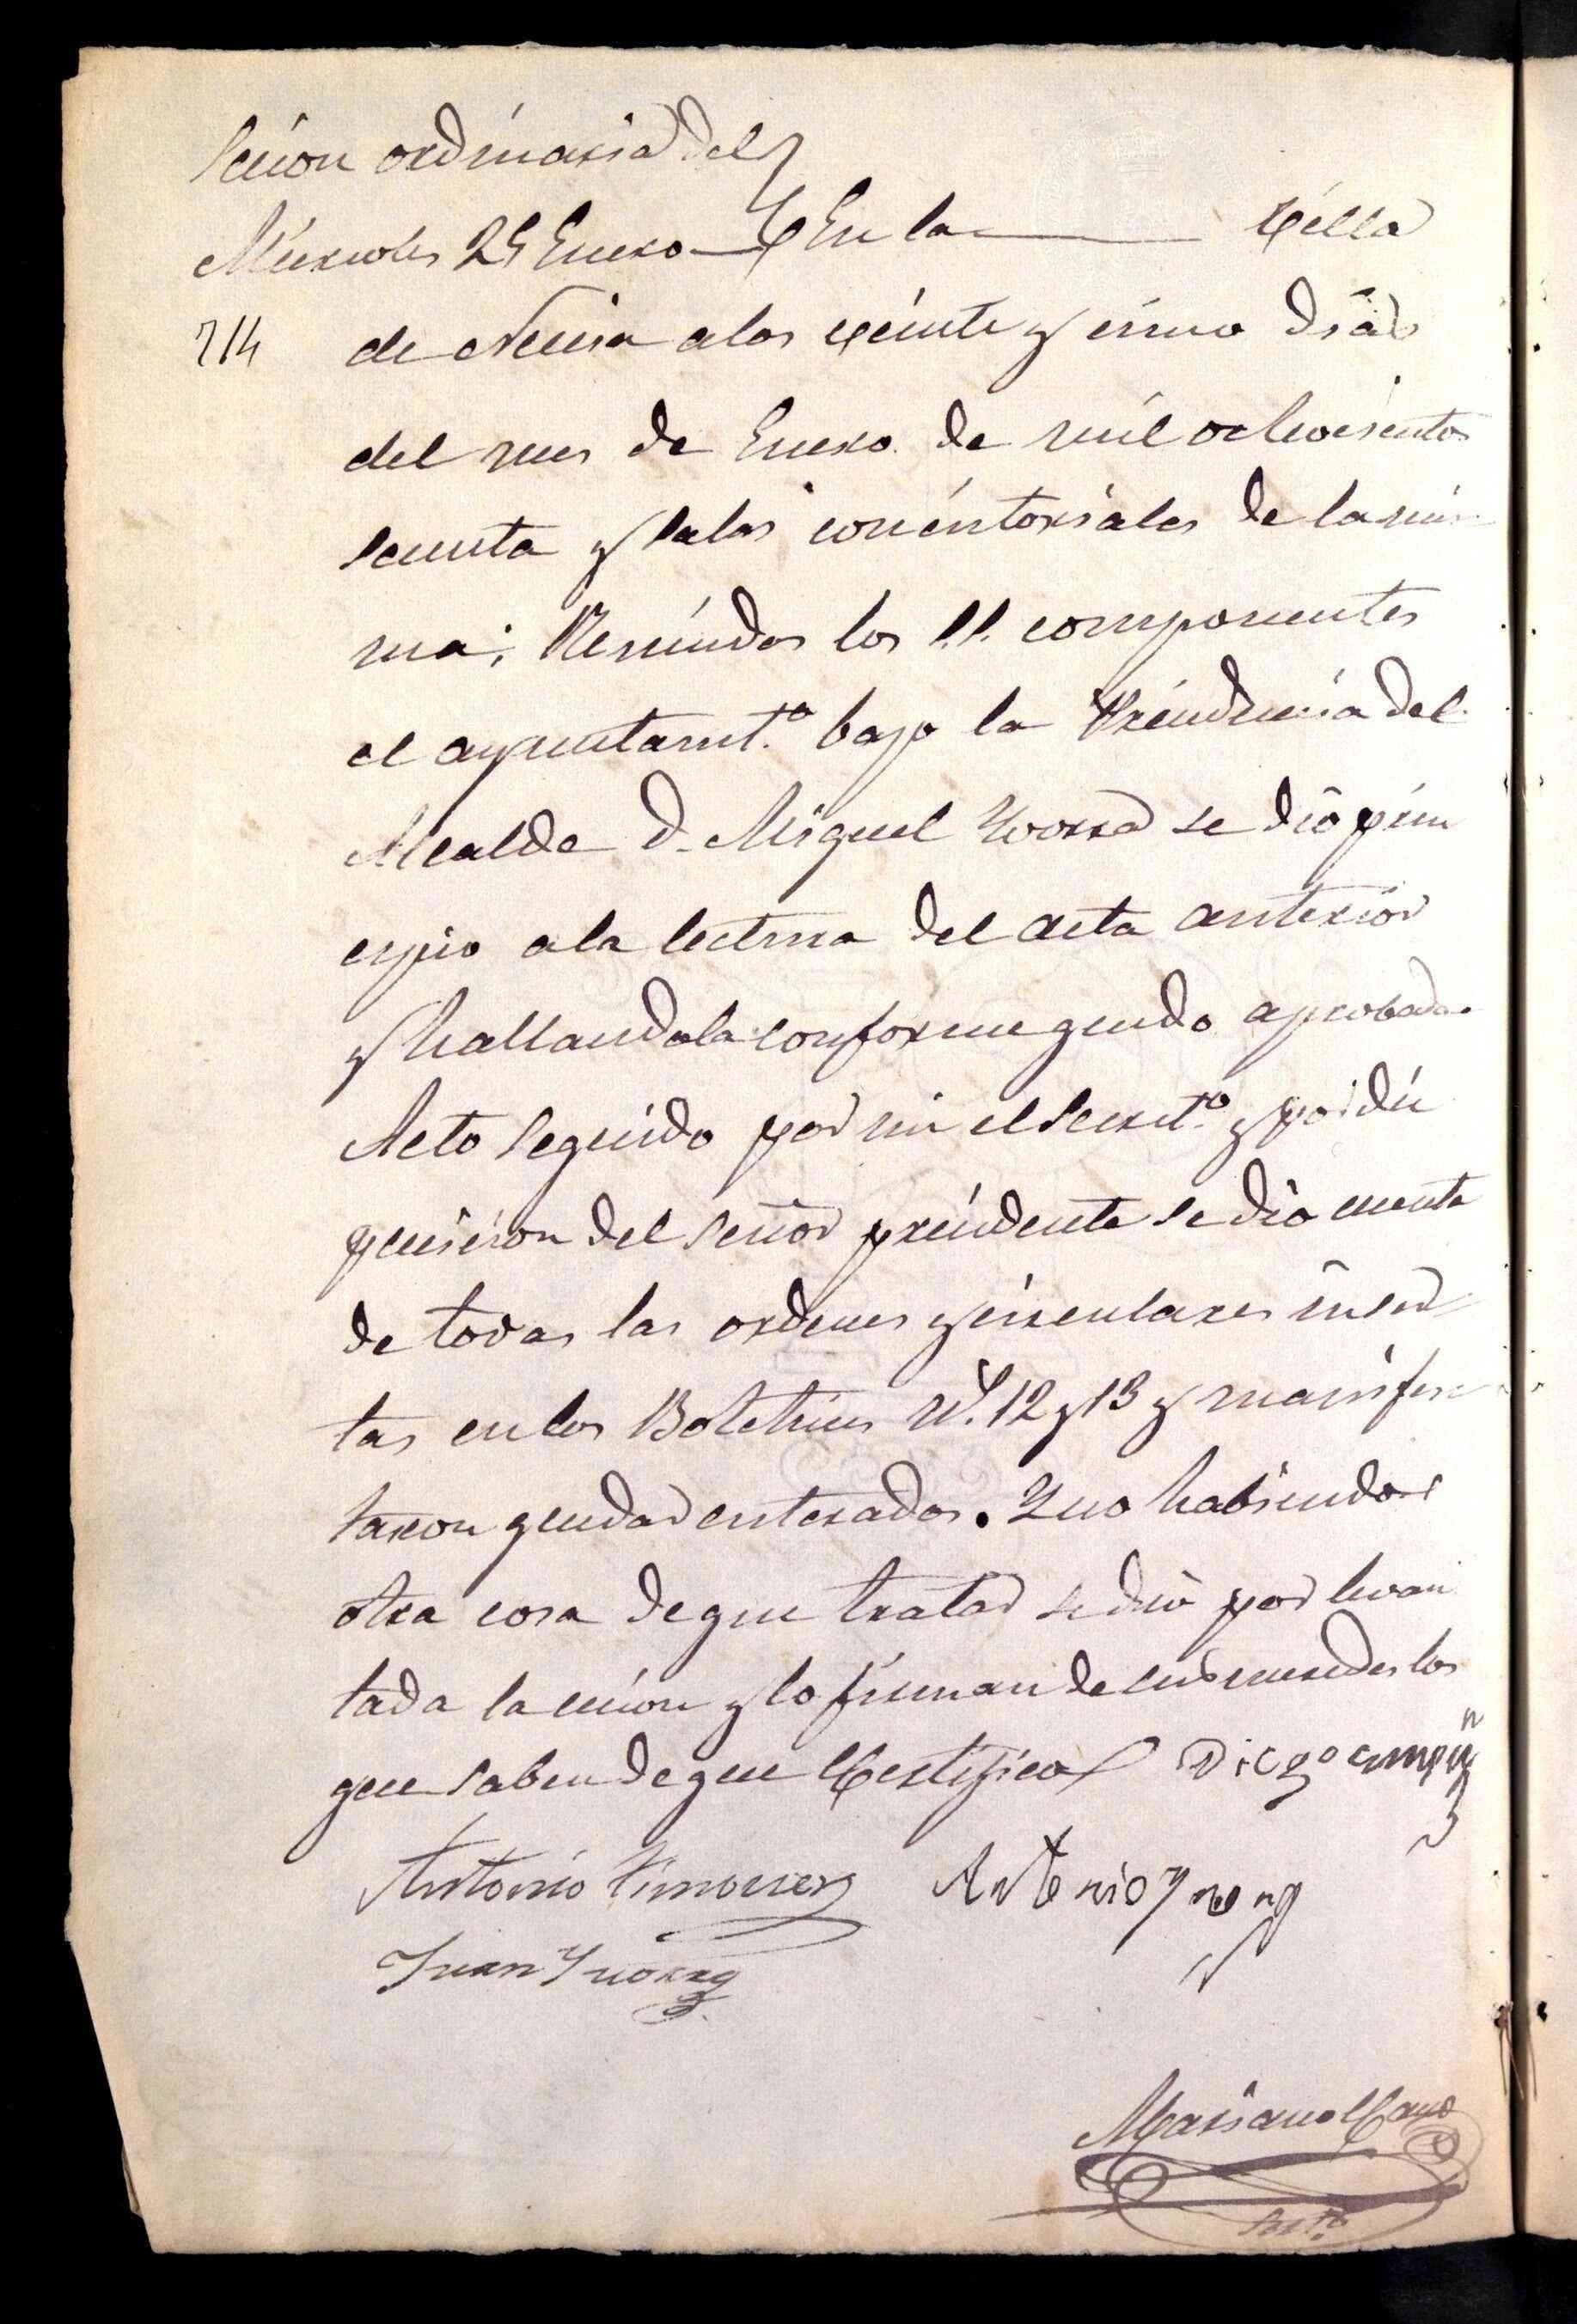 Secion ordinaria del
Miercoles 25 Enero En la Villa
214 de Nerja a los veinte y cinco dias
del mes de Enero de mil ochocientos
secenta y salas concistoriales de la mis
ma; Reunidos los SS. componentes
el ayuntamt.º bajo la Precidencia del
Alcalde D. Miguel Yvorra se dió prin
cipio ala lectura del acta anterior
y hallandola conforme quedo aprobada
Acto seguido por mi el Secret.º y por di
puicicion del señor precidente se dio cuenta
de todas las ordenes y circulares inser
tas en los Boletines Nº. 12 y 13 y manifes
taron quedar enterados. Y no habiendo
otra cosa de que tratar se dió por levan
tada la cecion y lo firman de sus mersedes los
que saben de que Certifico Diego
Antonio Antonio
Juan Yvorra
Mariano Cano
Sect.º